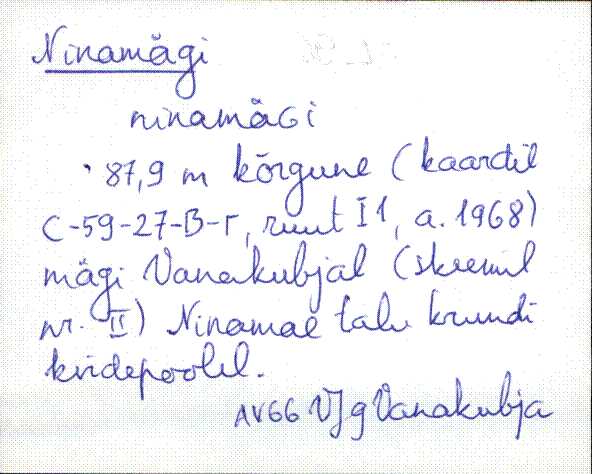 Ninamägi
ninamäGi
87,9 m kõrgune (kaardil
C-59-27-B-Г, ruut I1, a. 1968)
mägi Vanakubjal (skeemil
nr. II) Ninamäe talu krundi
kirdepoolel.
AV66 VJg Vanakubja